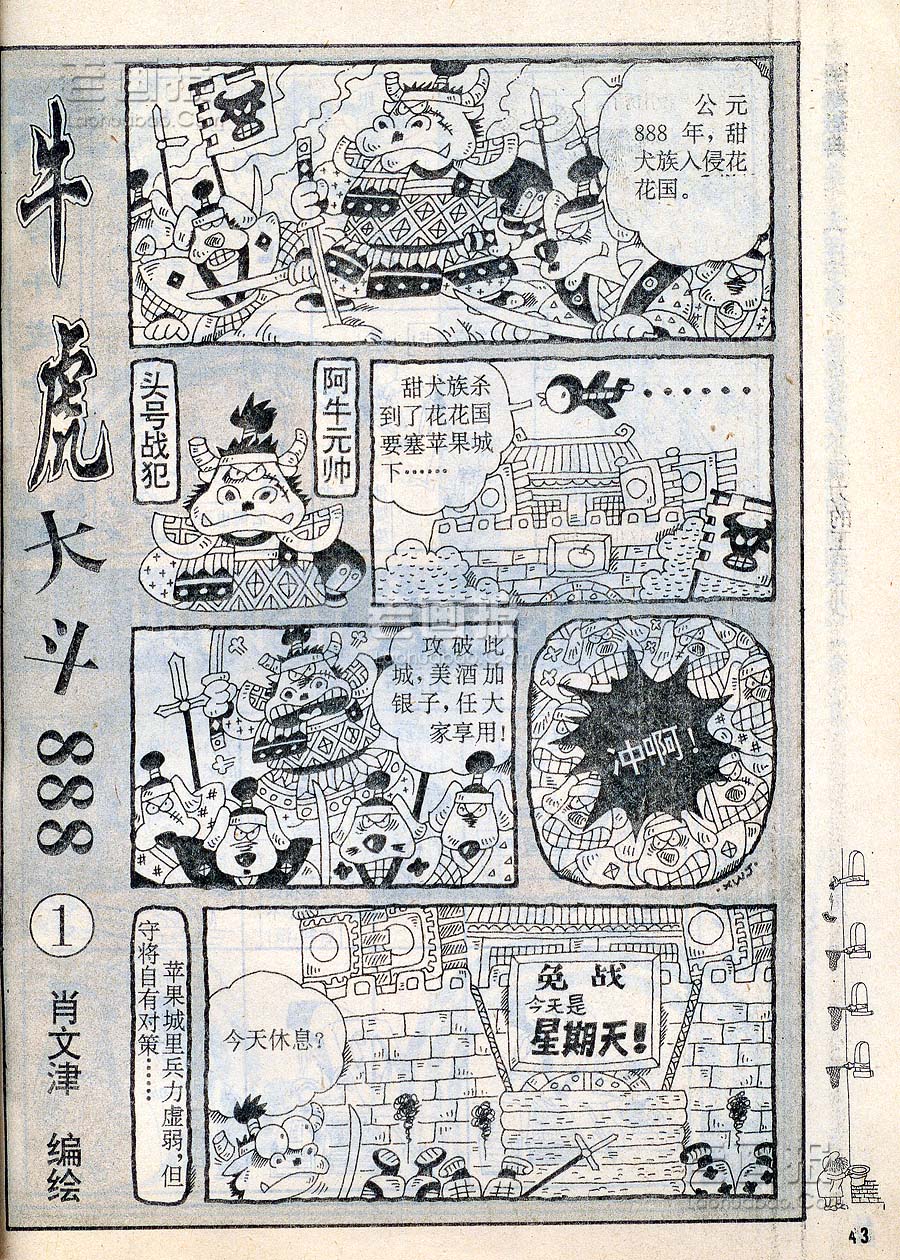 牛虎大斗888
①
肖文津 编绘
公元
888年，甜
犬族入侵花
花国。
头号战犯
阿牛元帅
甜犬族杀
到了花花国
要塞苹果城
下……
攻破此
城，美酒加
银子，任大
家享用！
冲啊！
XWJ.
苹果城里兵力虚弱，但
守将自有对策……
今天休息？
免战
今天是
星期天！
老画报
Laohuabao.Com
老画报
43